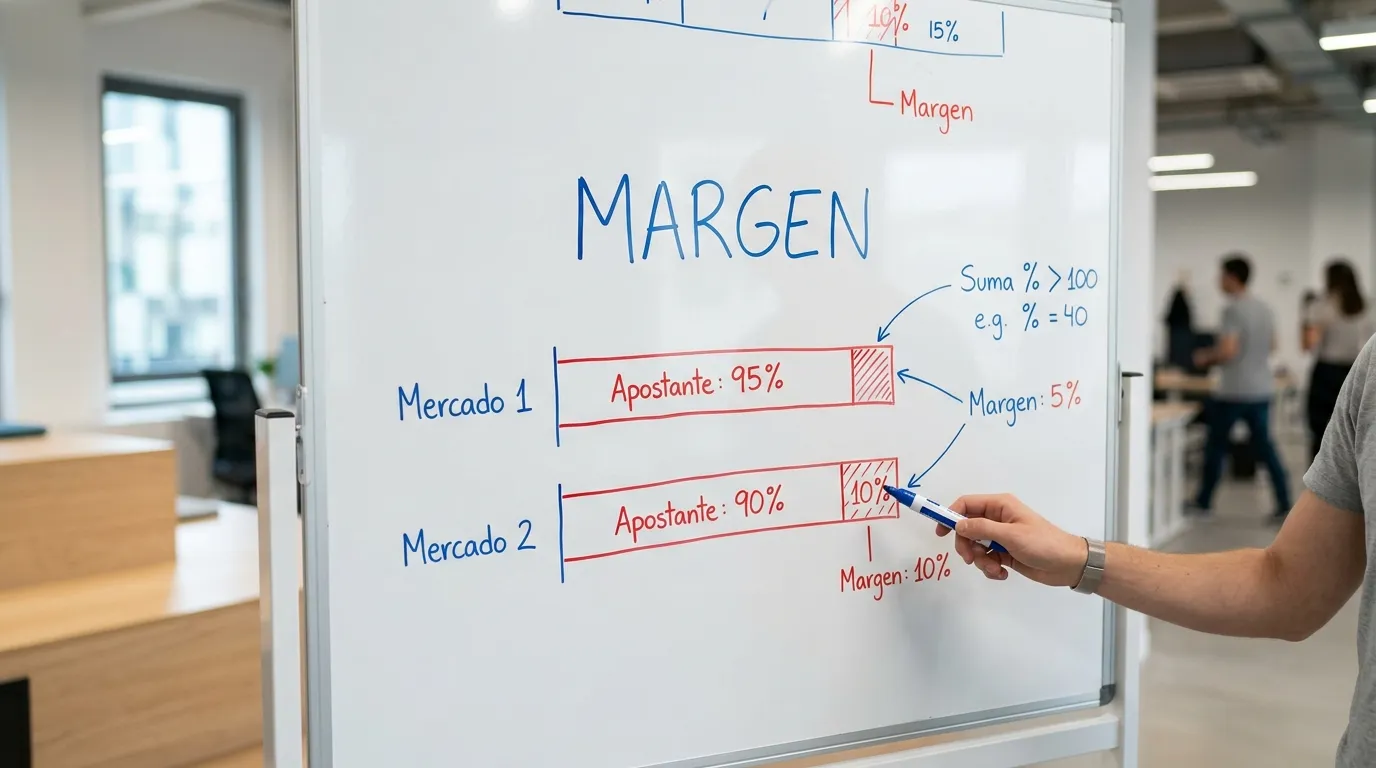 10%
15%
Margen
MARGEN
Suma % > 100
e.g. % = 40
Mercado 1
Apostante: 95%
Margen: 5%
Mercado 2
Apostante: 90%
10%
Margen: 10%